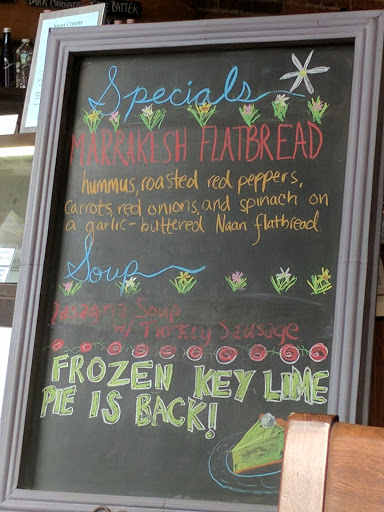 DARK CHOCOLATE
BATTER
Sweet Creams
Specials
MARRAKESH FLATBREAD
hummus, roasted red peppers,
carrots, red onions, and spinach on
a garlic-buttered Naan flatbread
Soup
Soup
w/ Turkey Sausage
FROZEN KEY LIME
PIE IS BACK!